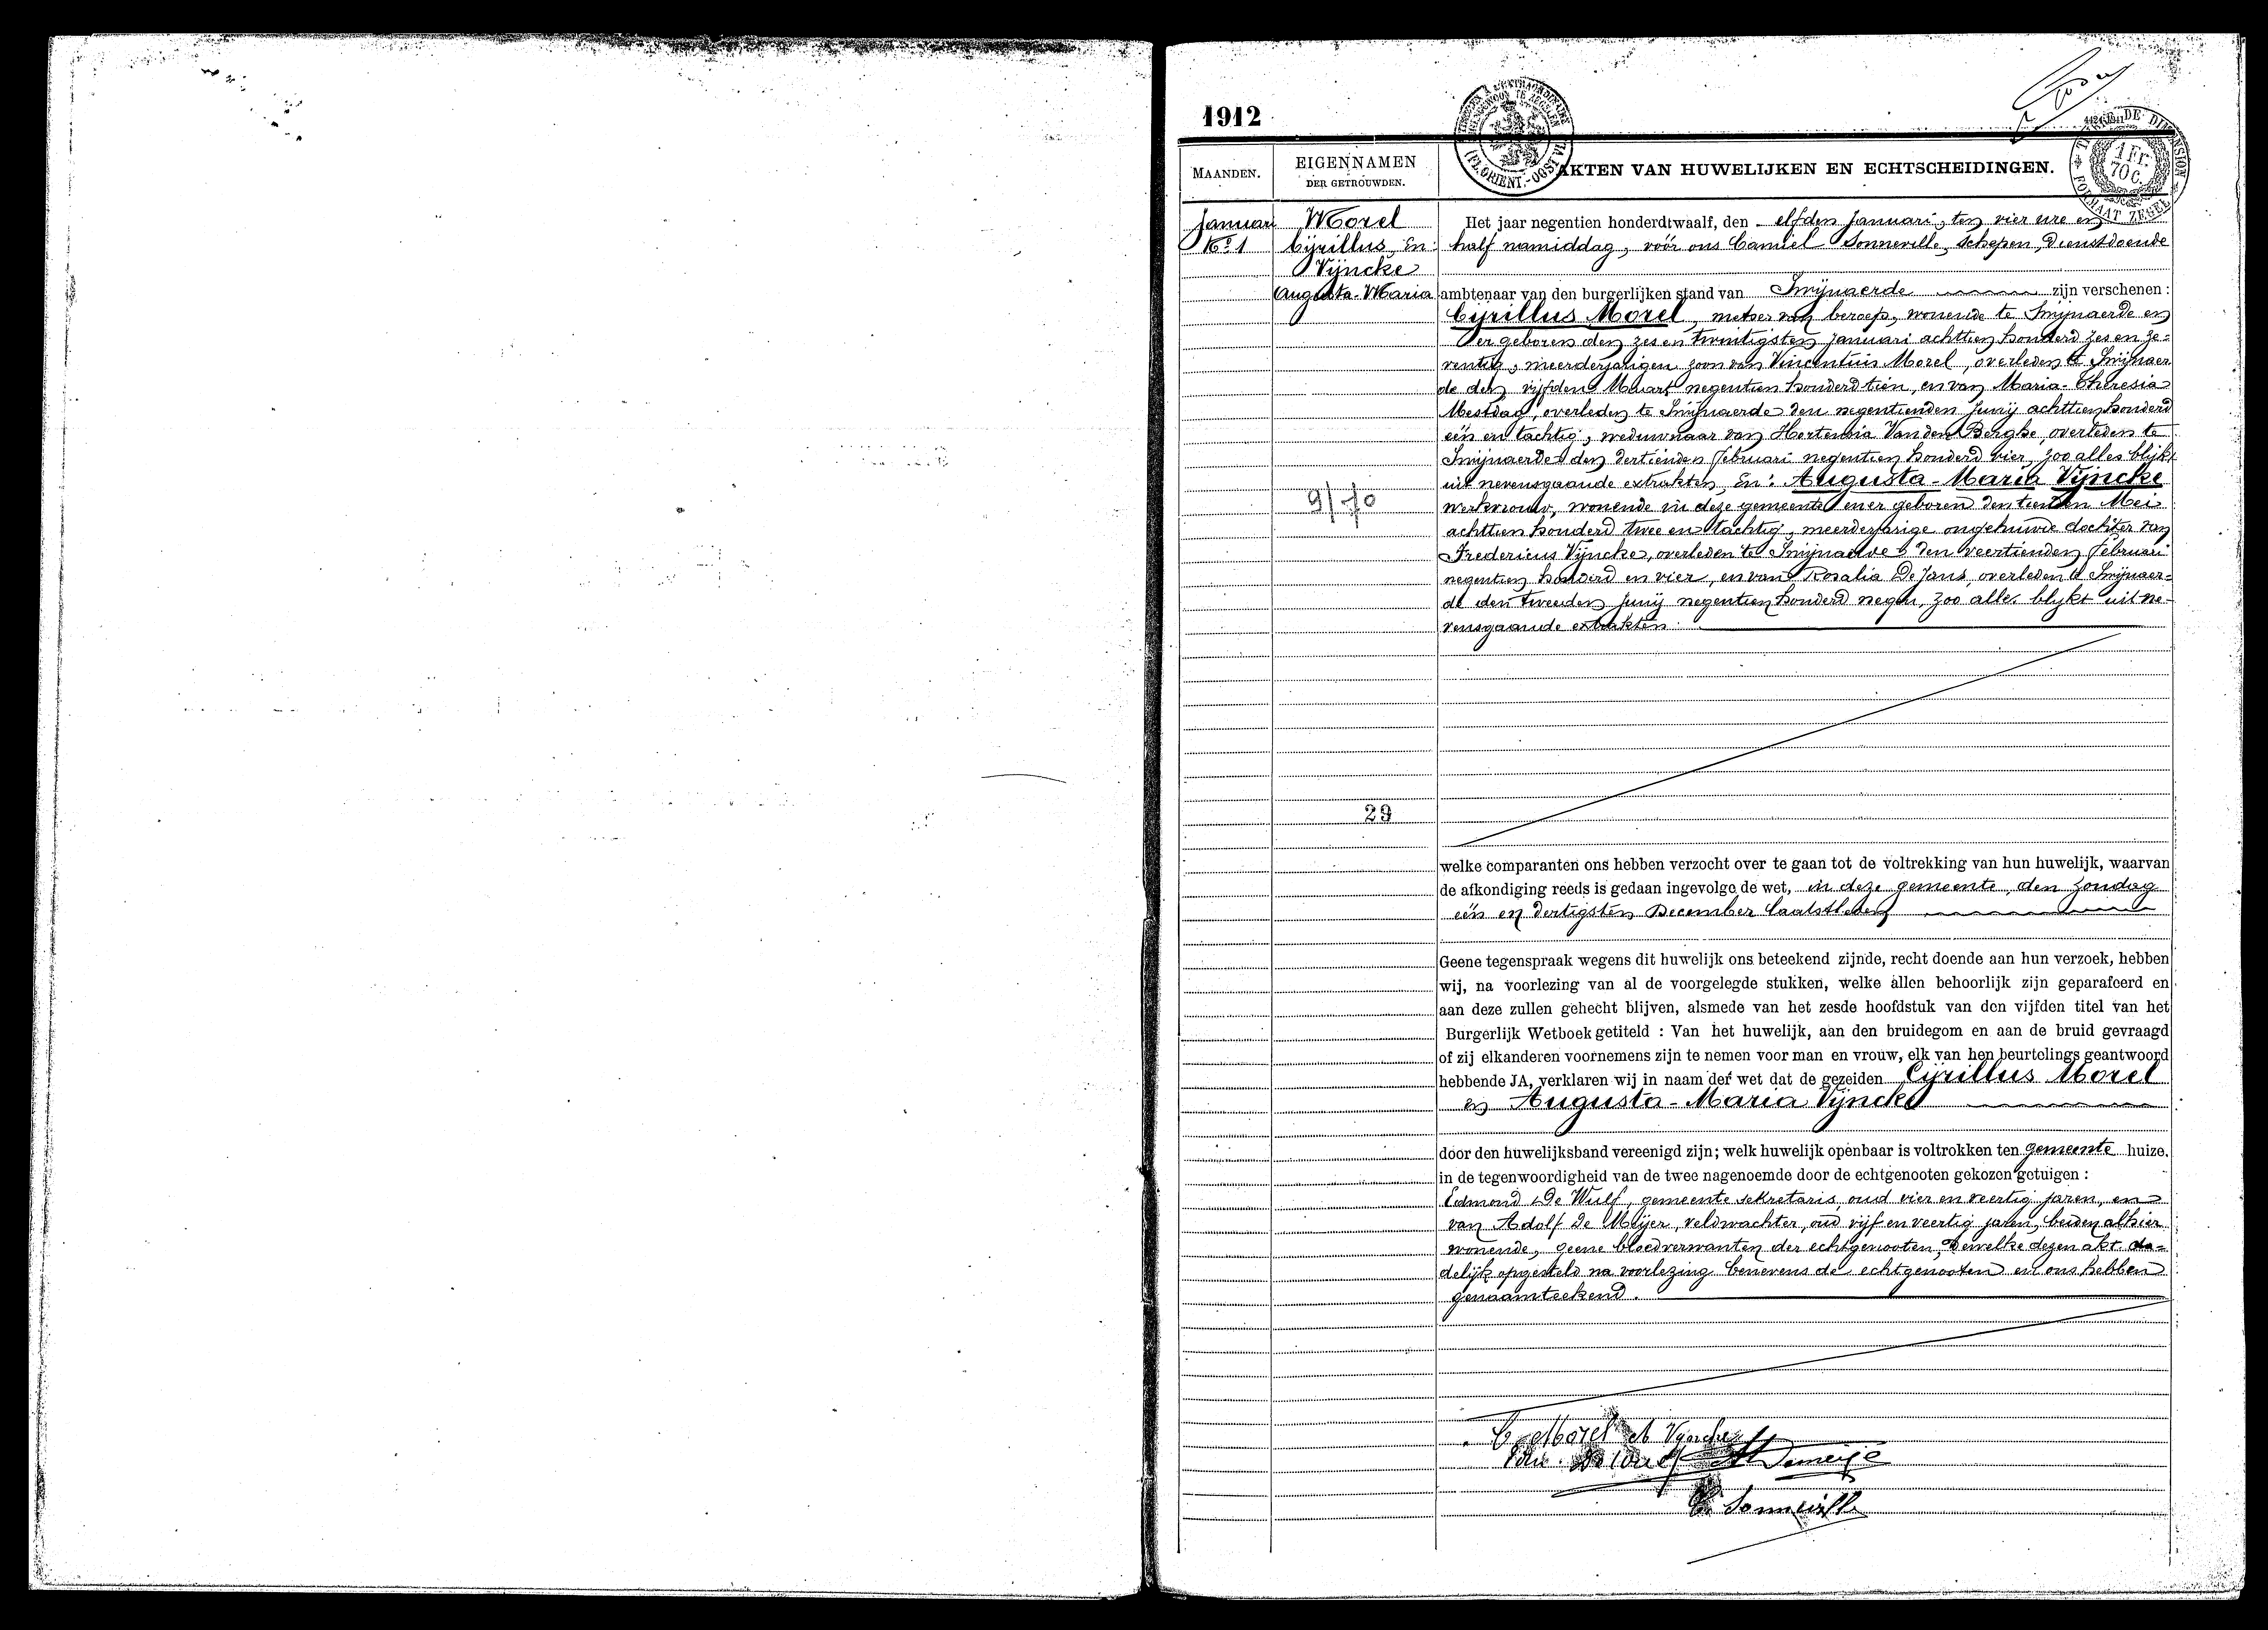 1912
MAANDEN.
EIGENNAMEN
DER GETROUWDEN.
AKTEN VAN HUWELIJKEN EN ECHTSCHEIDINGEN.
1 Fr.
70 C.
Januari
No 1
Morel
Cyrillus, en
Vyncke
Augusta-Maria
9/70
29
Het jaar negentien honderdtwaalf, den elfden Januari, ten vier ure en
half namiddag, vóór ons Camiel Sonneville, schepen, dienstdoende
ambtenaar van den burgerlijken stand van Swijnaerde zijn verschenen :
Cyrillus Morel, metser van beroep, wonende te Swijnaerde en
er geboren den zes en twintigsten Januari achttien honderd zes en ze-
ventig, meerderjarigen zoon van Vincentius Morel, overleden te Swijnaer
de den vijfden Maart negentien honderd tien, en van Maria-Theresia
Mestdag, overleden te Swijnaerde den negentienden Junij achttien honderd
één en tachtig, weduwnaar van Hortensia Van den Berghe, overleden te
Swijnaerde den dertienden Februari negentien honderd vier, zoo alles blijkt
uit nevensgaande extrakten, En : Augusta-Maria Vyncke
werkvrouw, wonende in deze gemeente en er geboren den tienden Mei
achttien honderd twee en tachtig, meerderjarige ongehuwde dochter van
Fredericus Vyncke, overleden te Swijnaerde den veertienden Februari
negentien honderd en vier, en van Rosalia De Jans, overleden te Swijnaer-
de den tweeden Junij negentien honderd negen, zoo alles blijkt uit ne-
vensgaande extrakten.
welke comparanten ons hebben verzocht over te gaan tot de voltrekking van hun huwelijk, waarvan
de afkondiging reeds is gedaan ingevolge de wet, in deze gemeente, den zondag
één en dertigsten December laatstleden
Geene tegenspraak wegens dit huwelijk ons beteekend zijnde, recht doende aan hun verzoek, hebben
wij, na voorlezing van al de voorgelegde stukken, welke allen behoorlijk zijn geparafeerd en
aan deze zullen gehecht blijven, alsmede van het zesde hoofdstuk van den vijfden titel van het
Burgerlijk Wetboek getiteld : Van het huwelijk, aan den bruidegom en aan de bruid gevraagd
of zij elkanderen voornemens zijn te nemen voor man en vrouw, elk van hen beurtelings geantwoord
hebbende JA, verklaren wij in naam der wet dat de gezeiden Cyrillus Morel
en Augusta-Maria Vyncke
door den huwelijksband vereenigd zijn; welk huwelijk openbaar is voltrokken ten gemeente huize,
in de tegenwoordigheid van de twee nagenoemde door de echtgenooten gekozen getuigen :
Edmond De Wulf, gemeente sekretaris, oud vier en veertig jaren, en
van Adolf De Meyer, veldwachter, oud vijf en veertig jaren, beiden alhier
wonende, geene bloedverwanten der echtgenooten, dewelke dezen akt da-
delijk opgesteld na voorlezing benevens de echtgenooten en ons hebben
genaamteekend.
C. Morel A Vyncke
C. Sonneville